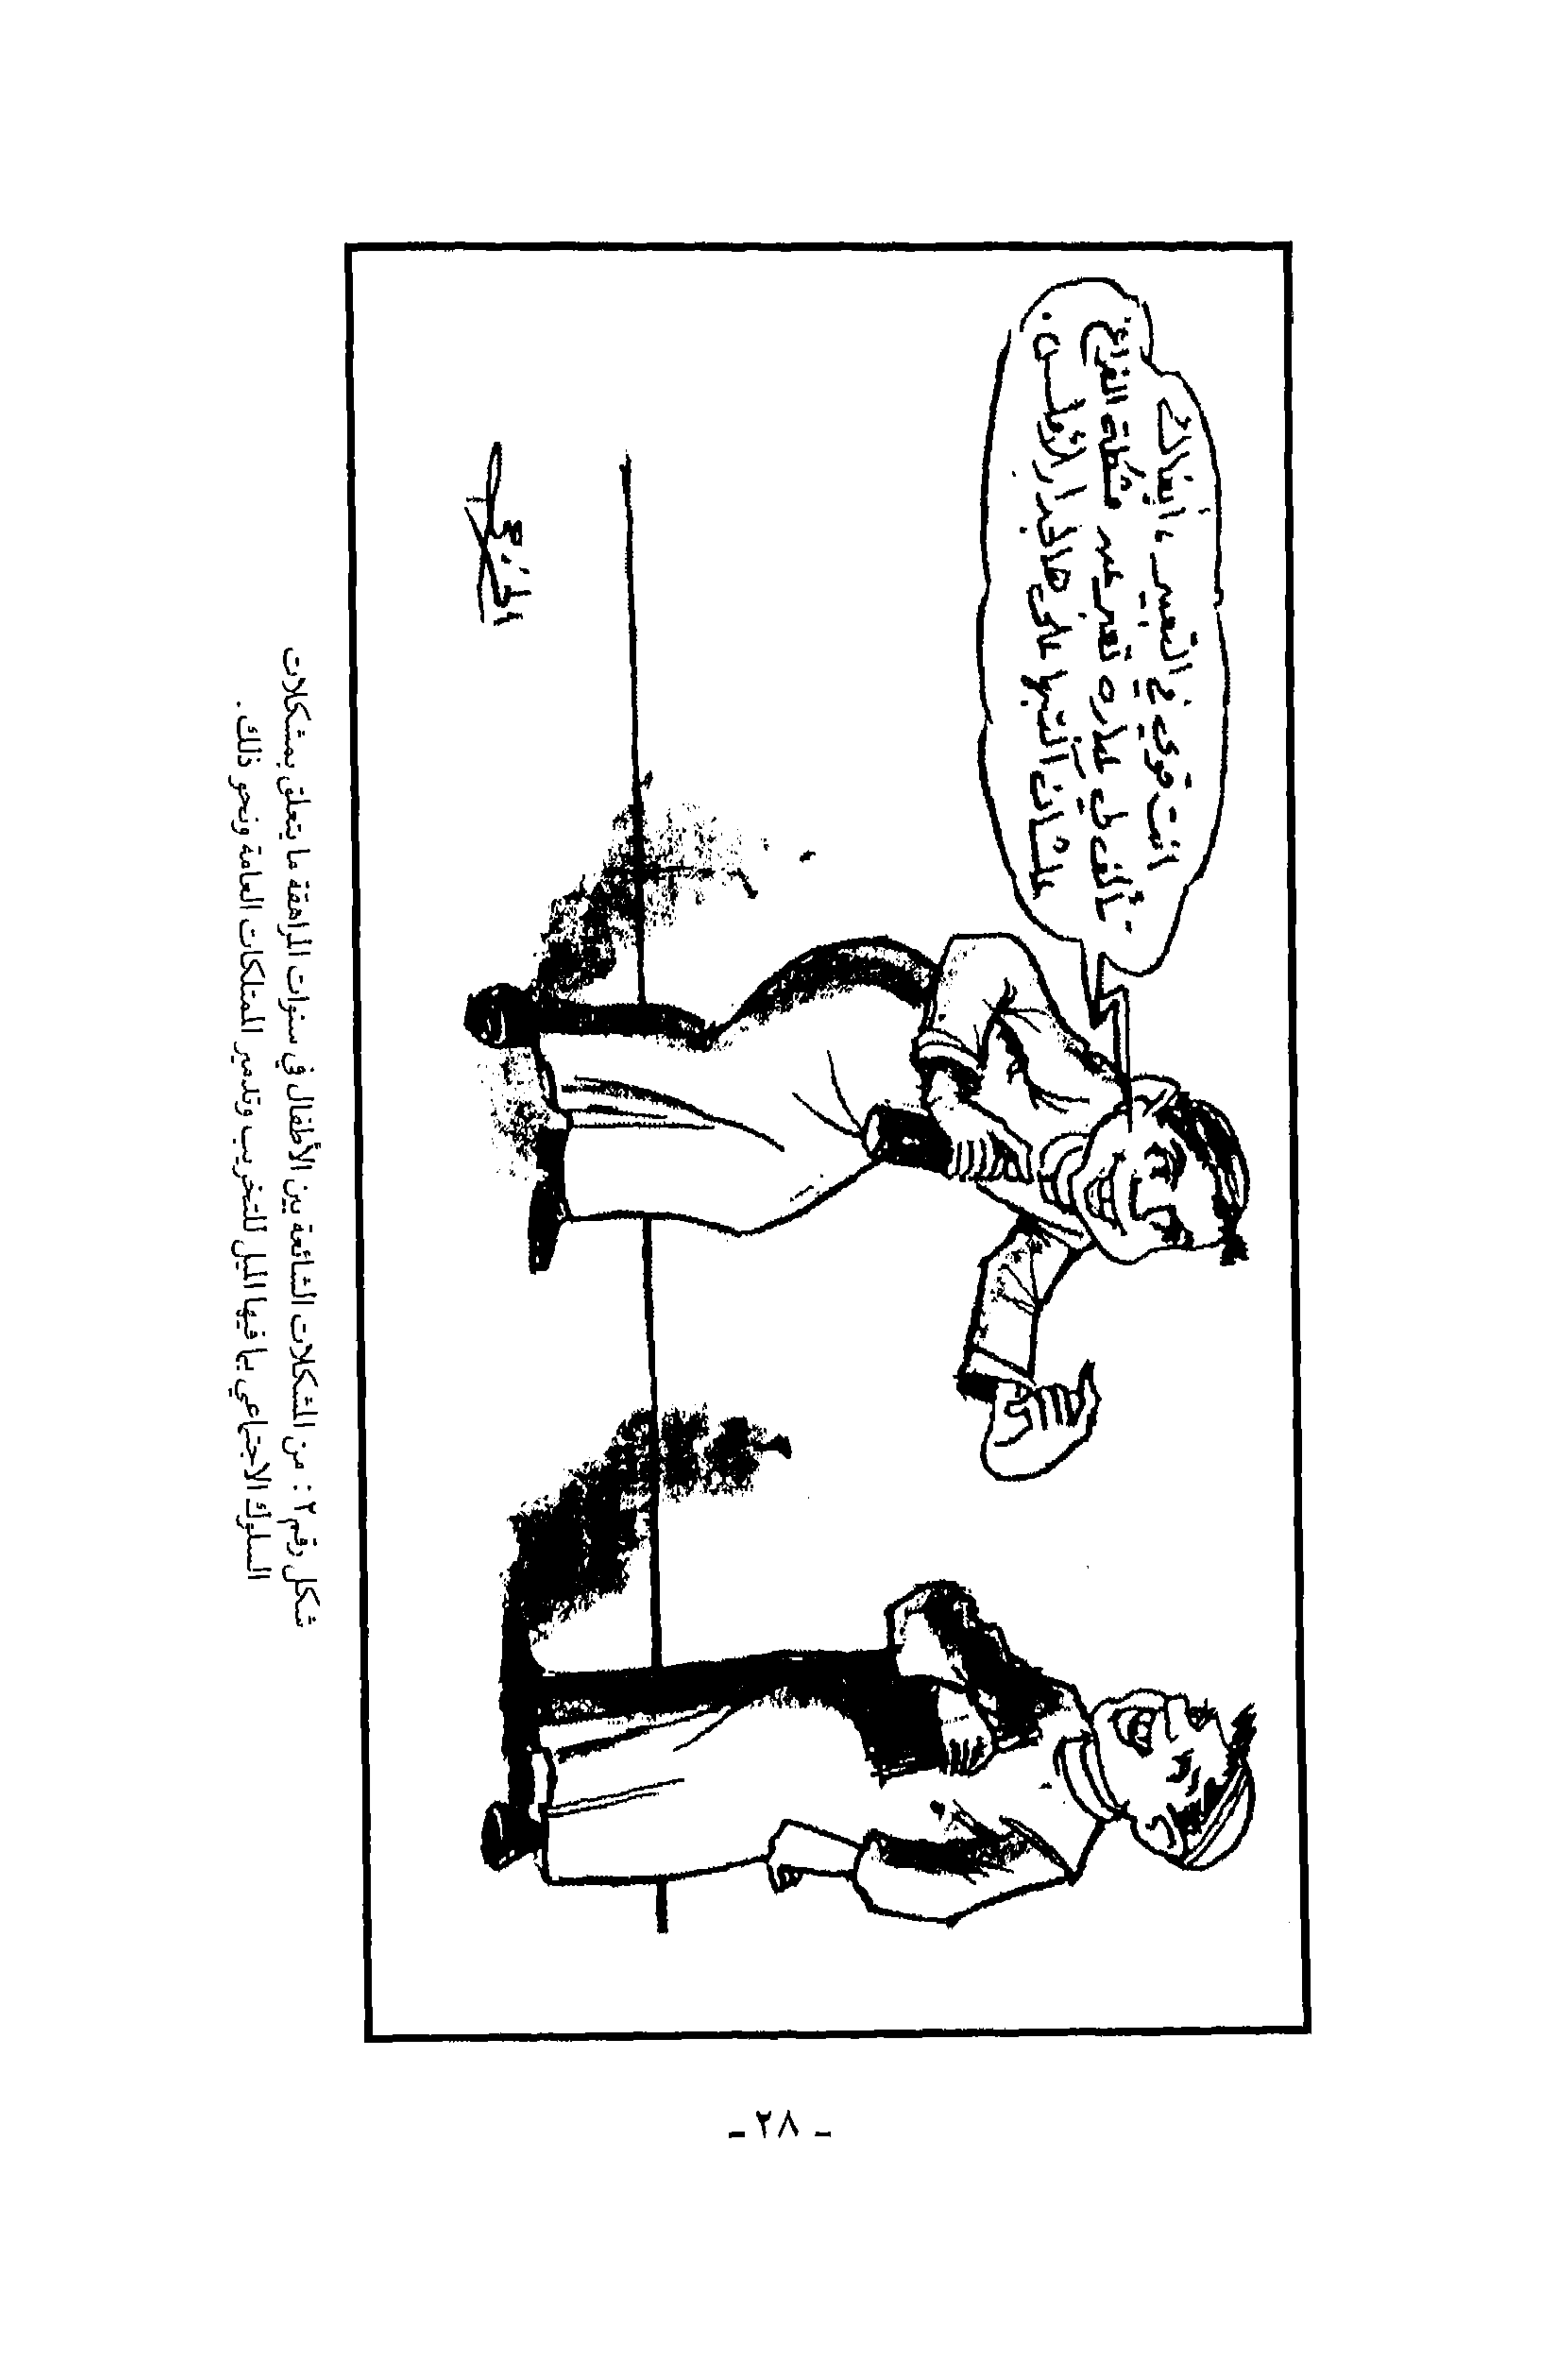 انت قوي في التعبير ،
تألف لي عباره تعبر عن مشكلة الفراغ
علشان اكتبها على هالجدار الأملس .
شكل رقم ٢ : من المشكلات الشائعة بين الأطفال في سنوات المراهقة ما يتعلق بمشكلات
السلوك الاجتماعي بما فيها الميل للتخريب وتدمير الممتلكات العامة ونحو ذلك .
ـ ٢٨ ـ